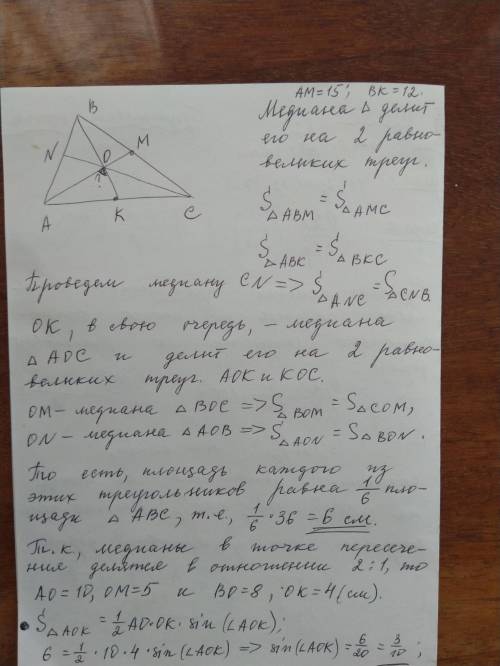 AM=15; BK=12.
Медиана △ делит
его на 2 равно-
великих треуг.
B
N
O
M
?
A
K
C
S△ABM = S△AMC
S△ABK = S△BKC
Проведем медиану CN => S△ANC = S△CNB.
OK, в свою очередь, – медиана
△AOC и делит его на 2 равно-
великих треуг. AOK и KOC.
OM – медиана △BOC => S△BOM = S△COM,
ON – медиана △AOB => S△AON = S△BON.
То есть, площадь каждого из
этих треугольников равна 1/6 пло-
щади △ABC, т.е., 1/6 · 36 = 6 см.
Т.к. медианы в точке пересече-
ния делятся в отношении 2:1, то
AO=10, OM=5 и BO=8, OK=4 (см).
S△AOK = 1/2 AO · OK · sin (∠AOK);
6 = 1/2 · 10 · 4 · sin(∠AOK) => sin(∠AOK) = 6/20 = 3/10;